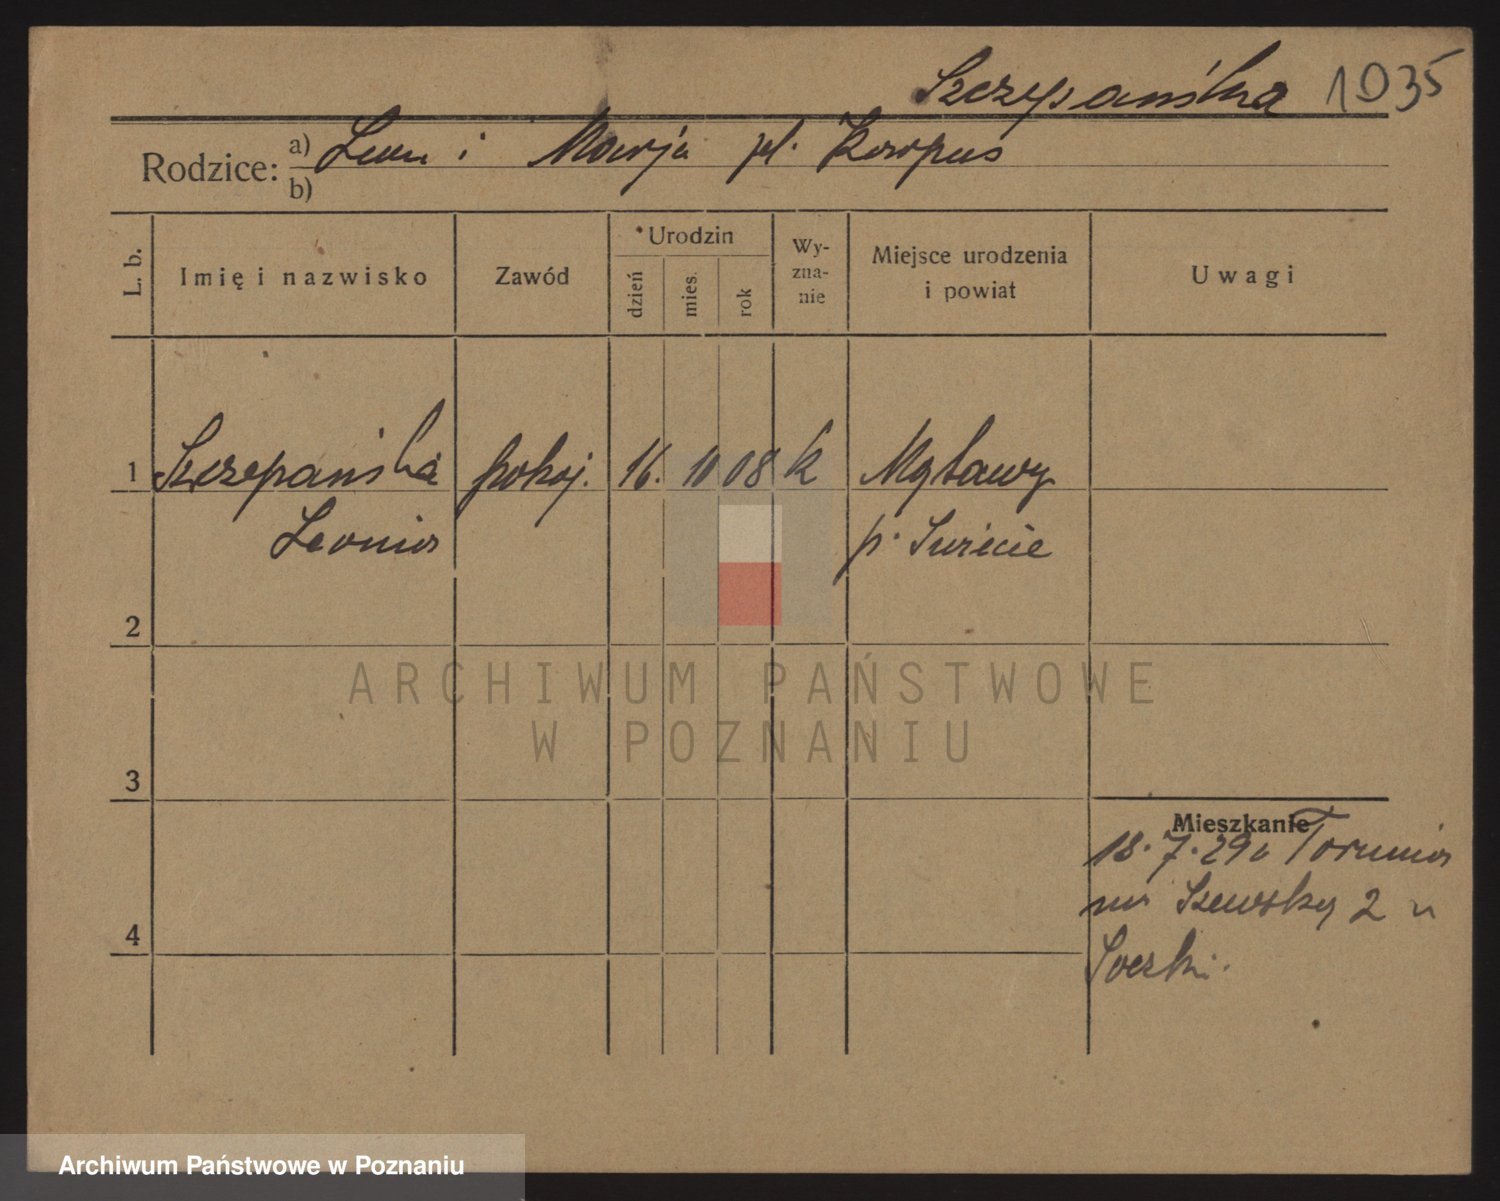 Szczepańska 1035
Rodzice: a) Leon i Marja
b)
L. b.
Imię i nazwisko
Zawód
Urodzin
dzień
mies.
rok
Wy-
zna-
nie
Miejsce urodzenia
i powiat
Uwagi
1 Szczepańska pokoj. 16. 10 08 k
Leonia p. Świecie
2
3
4
Mieszkanie
18.7.29 z Torunia
na Szewską 2 u
ARCHIWUM PAŃSTWOWE
W POZNANIU
Archiwum Państwowe w Poznaniu